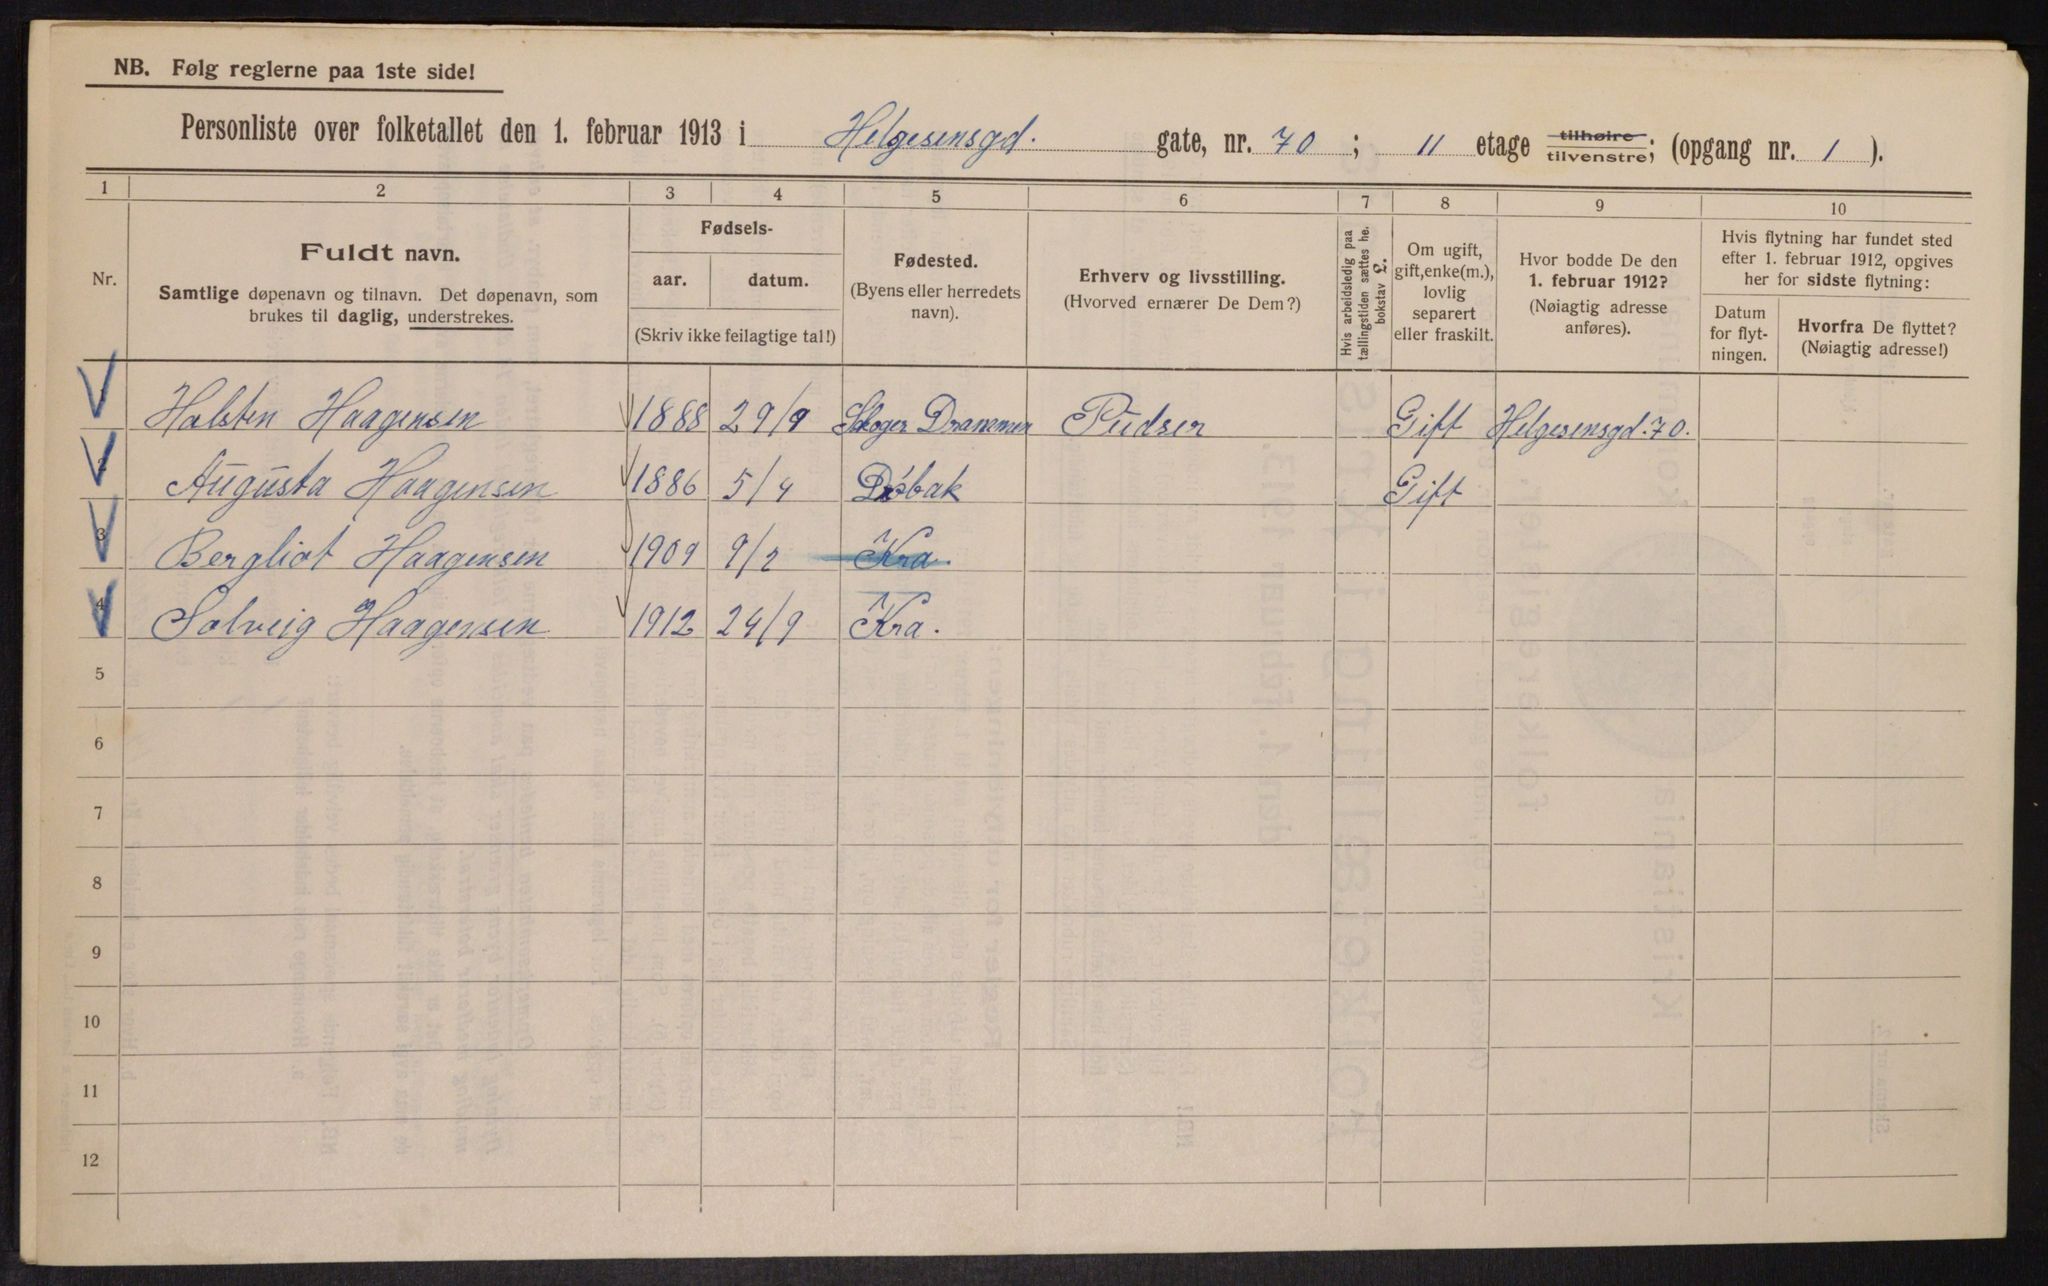 NB. Følg reglerne paa 1ste side!
Personliste over folketallet den 1. februar 1913 i Helgesensgd. gate, nr. 70 ; 11 etage tilhøire tilvenstre; (opgang nr. 1 ).
1 2 3 4 5 6 7 8 9 10
Nr.
Fuldt navn.
Samtlige døpenavn og tilnavn. Det døpenavn, som
brukes til daglig, understrekes.
Fødsels-
aar. datum.
(Skriv ikke feilagtige tal!)
Fødested.
(Byens eller herredets
navn).
Erhverv og livsstilling.
(Hvorved ernærer De Dem?)
Hvis arbeidsledig paa
tællingstiden sættes he.
bokstav L.
Om ugift,
gift, enke(m.),
lovlig
separert
eller fraskilt.
Hvor bodde De den
1. februar 1912?
(Nøiagtig adresse
anføres).
Hvis flytning har fundet sted
efter 1. februar 1912, opgives
her for sidste flytning:
Datum
for flyt-
ningen.
Hvorfra De flyttet?
(Nøiagtig adresse!)
1 Halsten Haagensen 1888 29/9 Skoger Drammen Pudser Gift Helgesensgd. 70.
2 Augusta Haagensen 1886 5/4 Drøbak Gift
3 Bergliot Haagensen 1909 9/2 Kra.
4 Solveig Haagensen 1912 24/9 Kra.
5
6
7
8
9
10
11
12